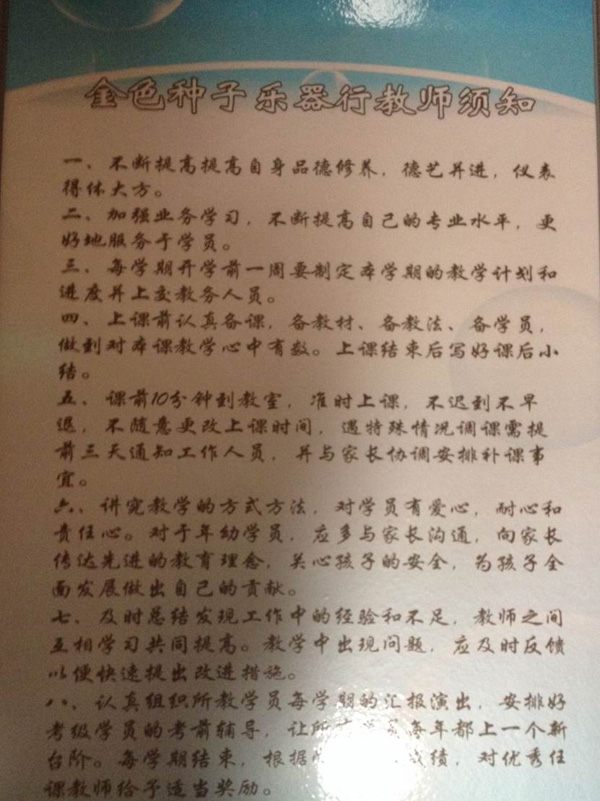 金色种子乐器行教师须知
一、不断提高提高自身品德修养，德艺并进，仪表
得体大方。
二、加强业务学习，不断提高自己的专业水平，更
好地服务于学员。
三、每学期开学前一周要制定本学期的教学计划和
进度并上交教务人员。
四、上课前认真备课，备教材、备教法、备学员，
做到对本课教学心中有数。上课结束后写好课后小
结。
五、课前10分钟到教室，准时上课，不迟到不早
退，不随意更改上课时间，遇特殊情况调课需提
前三天通知工作人员，并与家长协调安排补课事
宜。
六、讲究教学的方式方法，对学员有爱心，耐心和
责任心。对于年幼学员，应多与家长沟通，向家长
传达先进的教育理念，关心孩子的安全，为孩子全
面发展做出自己的贡献。
七、及时总结发现工作中的经验和不足，教师之间
互相学习共同提高。教学中出现问题，应及时反馈
以便快速提出改进措施。
八、认真组织所教学员每学期的汇报演出，安排好
考级学员的考前辅导，让所 每年都上一个新
台阶。每学期结束，根据 成绩，对优秀任
课教师给予适当奖励。